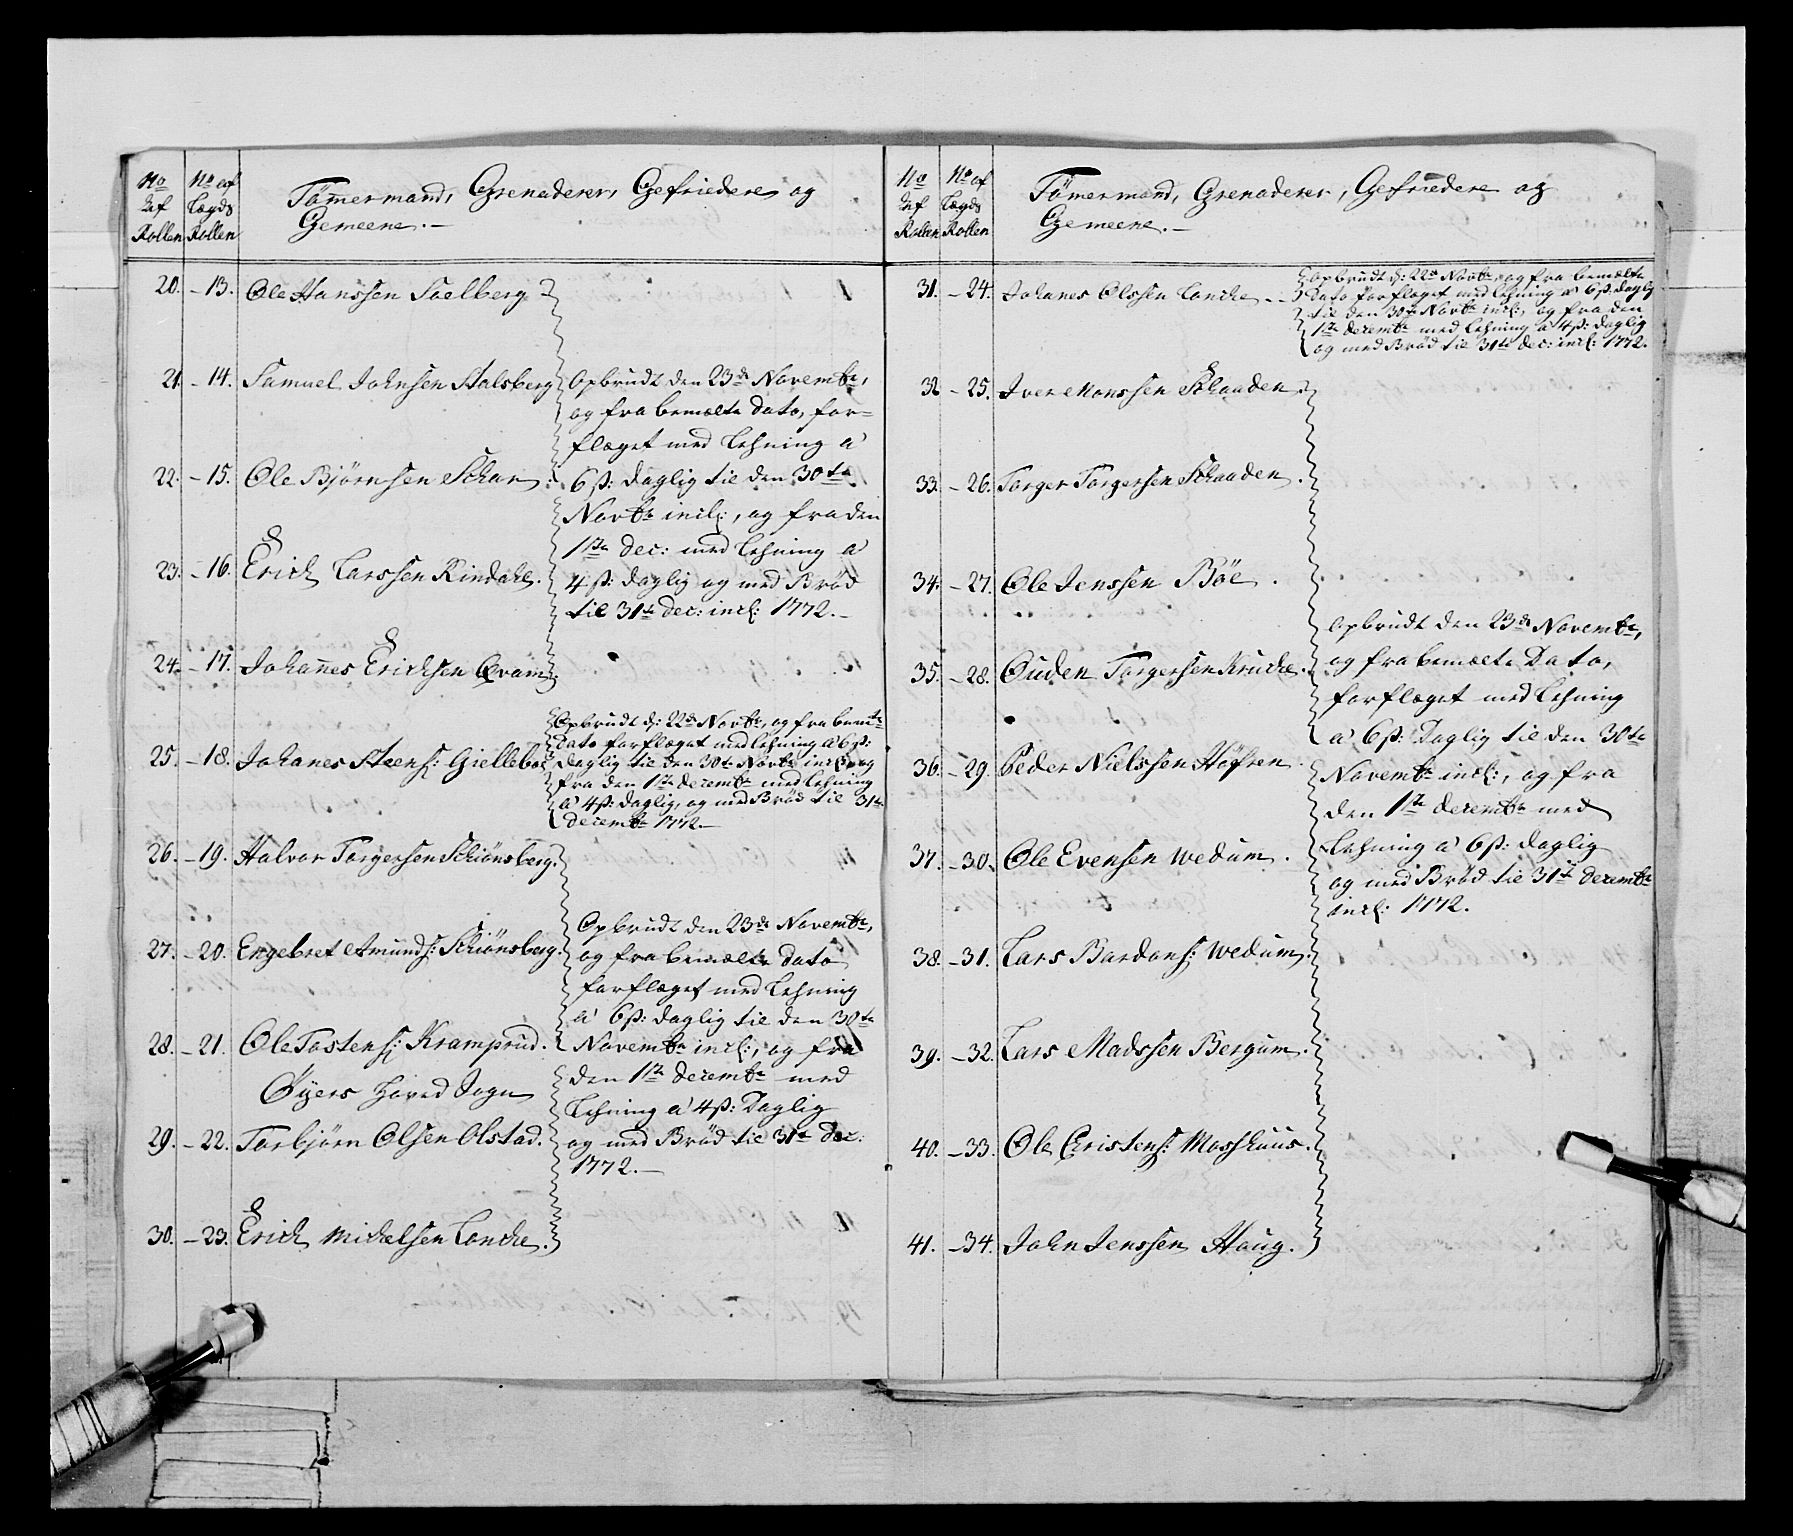 No af Rollen
No af Lægds Rollen
Tömermand, Grenaderer, Gefriedere og
Gemeene.
20. – 13. Ole Hanssen Solberg
21. – 14. Samuel Johnsen Stalsberg
22. – 15. Ole Bjørnsen Schar
23. – 16. Erich Larssen Rindahl.
24. – 17. Johannes Erichsen Qvam.
Opbrudt den 23de Novembr,
og fra bemælte dato, for=
flæget med Lehning a
6 ß: daglig til den 30te
Novbr incl:, og fra den
1ste dec: med Lehning a
4 ß: daglig og med Brød
til 31te dec: incl: 1772.
25. – 18. Johanes Steens: Giellebøe
Opbrudt d: 22de Novbr, og fra bemte
dato forflæget med Lehning a 6 ß:
daglig til den 30te Novbr incl: og
fra den 1ste decembr med Lehning
a 4 ß: daglig, og med Brød til 31te
decembr 1772.
26. – 19. Halvor Torgersen Schiönsberg.
27. – 20. Engebret Amunds: Schiönsberg.
28. – 21. Ole Tostens: Kramprud.
Öyers Hoved Sogn
29. – 22. Torbjörn Olsen Olstad.
30. – 23. Erich Michelsen Lonche.
Opbrudt den 23de Novembr,
og fra bemælte dato
forflæget med Lehning
a 6 ß: daglig til den 30te
Novembr incl:, og fra
den 1ste decembr med
Lehning a 4 ß: Daglig
og med Brød til 31te dec:
1772.
No af Rollen
No af Lægds Rollen
Tömermand, Grenaderer, Gefriedere og
Gemeene.
31. – 24. Johanes Olssen Lonche
opbrudt d: 22de Novbr, og fra bemælte
Dato forflæget med Lehning a 6 ß: daglig
til den 30te Novbr incl:, og fra den
1ste decembr med Lehning a 4 ß: daglig
og med Brød til 31te dec: incl: 1772.
32 – 25. Iver Monssen Schaaden.
33. – 26. Torger Torgersen Schaaden.
34. – 27. Ole Jenssen Böe.
35. – 28. Ouden Torgersen Kruche.
36. – 29. Peder Nielssen Höfren.
37. – 30. Ole Evensen Wedum.
38. – 31. Lars Bardons: Wedum.
39. – 32. Lars Madssen Bergum.
40. – 33. Ole Christens: Mosshuus.
41. – 34. John Jenssen Haug.
opbrudt den 23de Novembr,
og fra bemælte Dato,
forflæget med Lehning
a 6 ß: Daglig til den 30te
Novembr incl:, og fra
den 1ste decembr med
Lehning a 6 ß: daglig
og med Brød til 31te decembr
incl: 1772.